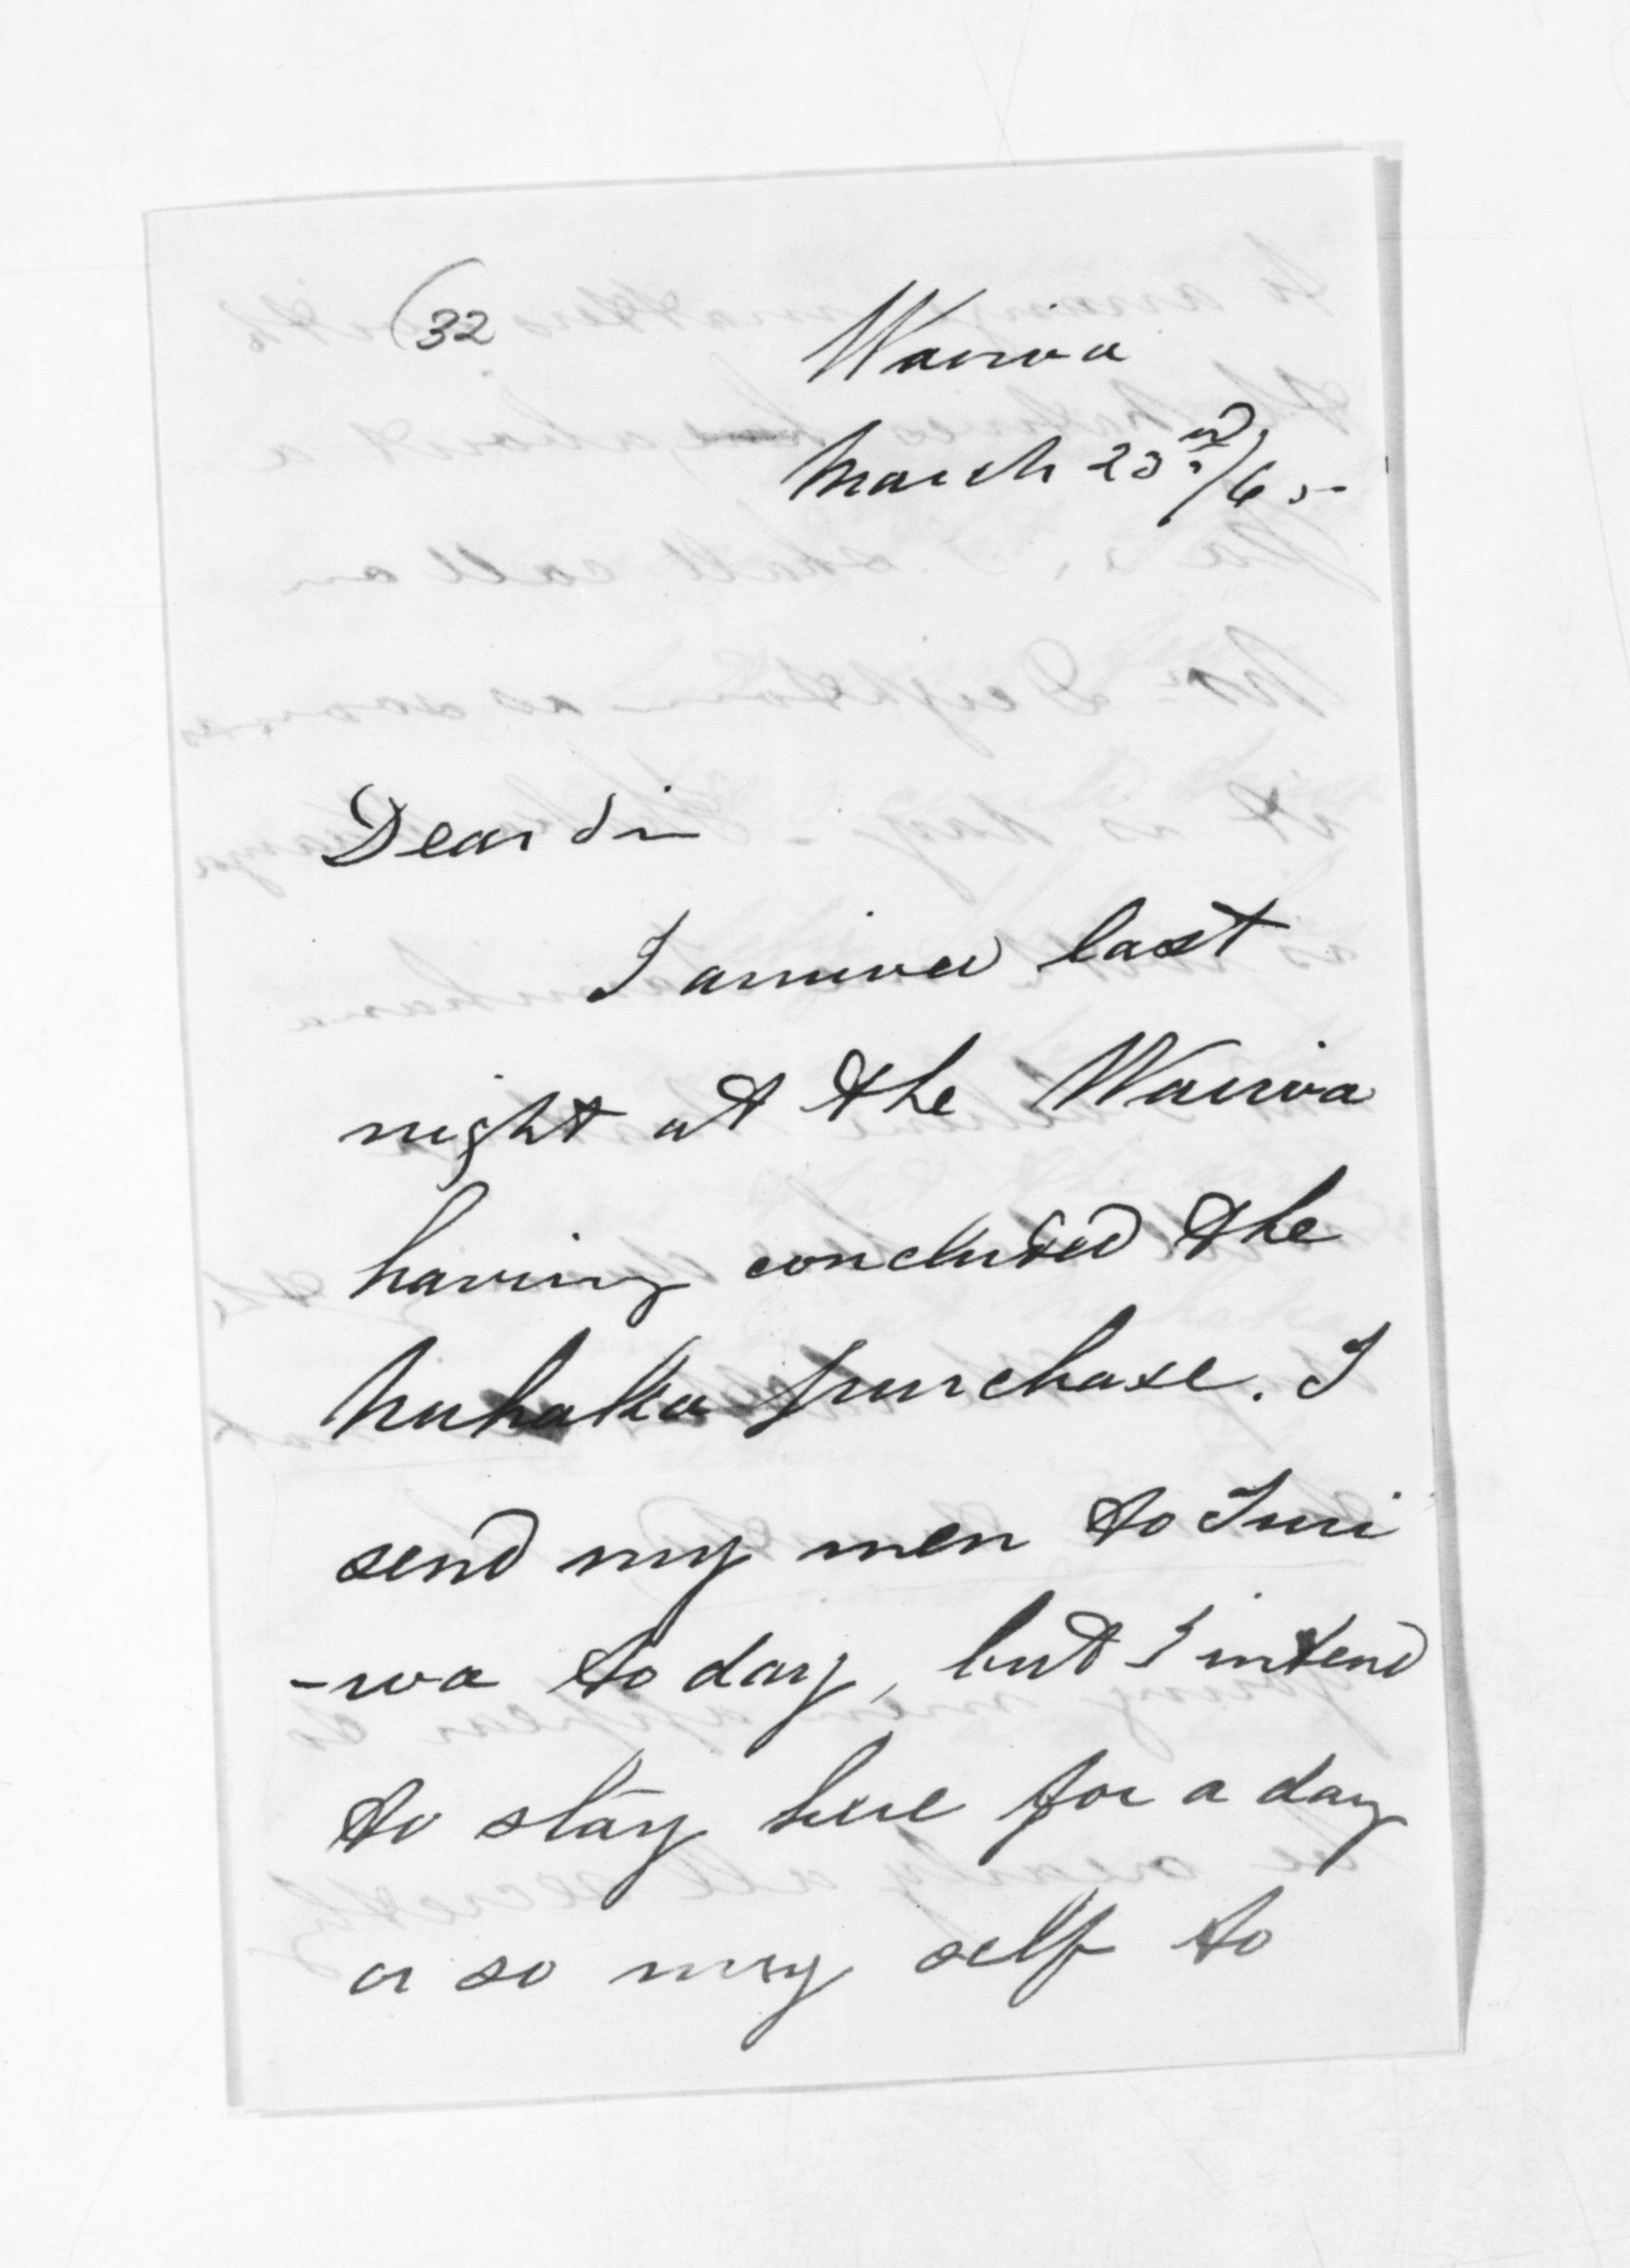 (32
Wairoa
March 23rd/65
Dear Sir
I arrived last
night at the Wairoa
having concluded the
Nuhaka purchase. I
send my men to Turi
-wa to day, but I intend
to stay here for a day
or so my self to